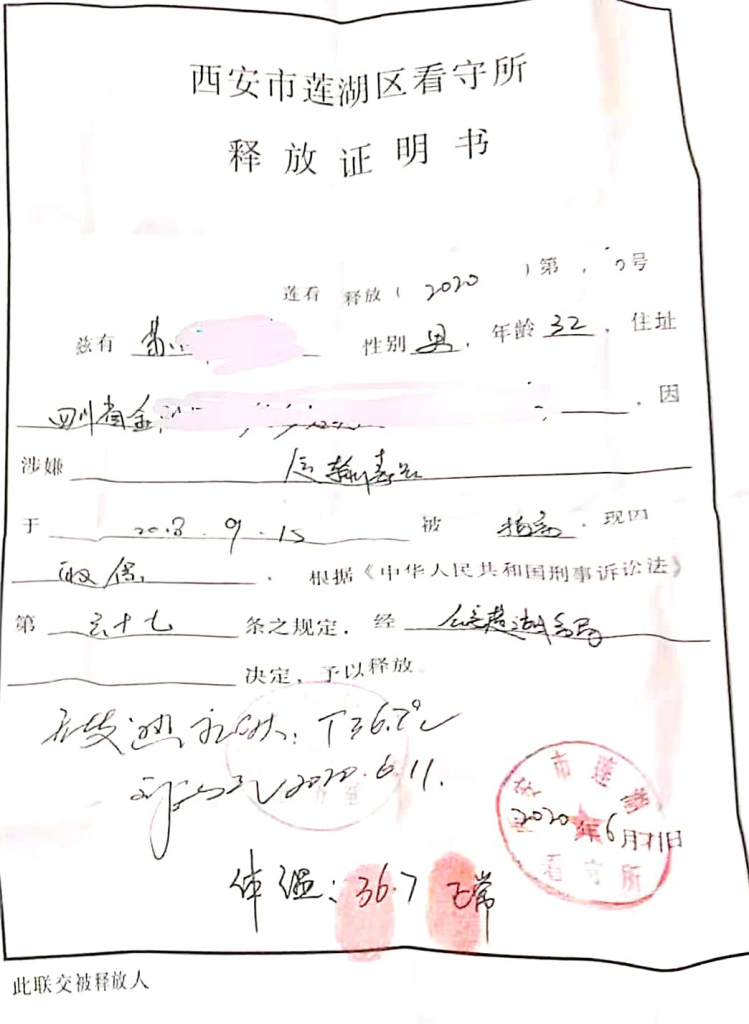 西安市莲湖区看守所
释放证明书
莲看 释放(2020)第 号
兹有 性别 男, 年龄 32, 住址
四川省金 , 因
涉嫌 运输毒品
于 9.15 被 , 现因
取保 , 根据《中华人民共和国刑事诉讼法》
第 六十七 条之规定, 经
决定, 予以释放
无发热 T36.7℃
2020.6.11.
市莲湖
2020年6月11日
看守所
体温: 36.7 正常
此联交被释放人